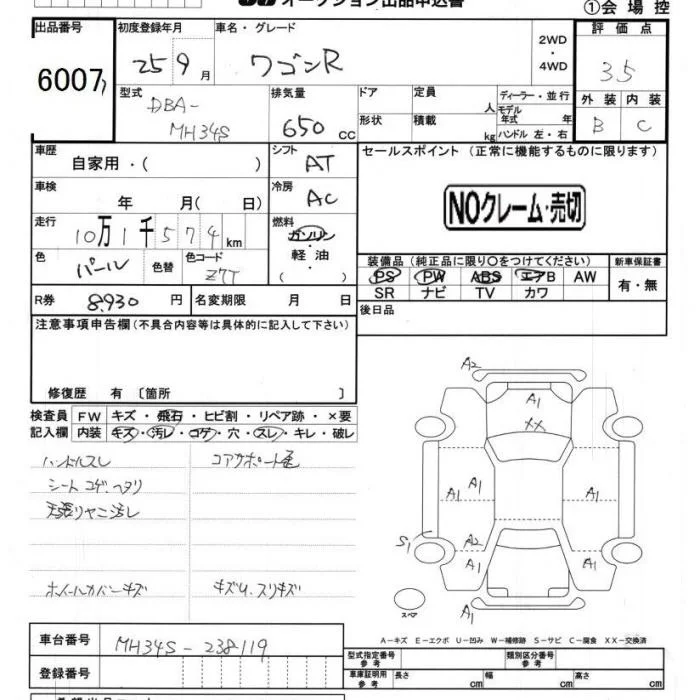 オークション出品申込書
①会場控
出品番号 初度登録年月 車名・グレード 2WD・4WD 評価点
6007 25 9月 ワゴンR 3.5
型式 排気量 ドア 定員 人 ディーラー・並行 外装 内装
DBA-MH34S 650cc 形状 積載 kg モデル年式 年 ハンドル 左・右 B C
車歴 シフト セールスポイント (正常に機能するものに限ります)
自家用・( ) AT
車検 冷房
年 月( 日) AC NOクレーム・売切
走行 燃料
10万1千574km ガソリン・軽油・( )
色 色替 色コード 装備品(純正品に限り○をつけてください) 新車保証書
パール Z7T PS PW ABS エアB AW 有・無
SR ナビ TV カワ
R券 8,930円 名変期限 月 日 後日品
注意事項申告欄(不具合内容等は具体的に記入して下さい)
修復歴 有 〔箇所 〕
検査員 FW キズ・飛石・ヒビ割・リペア跡・×要
記入欄 内装 キズ・汚レ・コゲ・穴・スレ・キレ・破レ
ハンドルスレ コアサポート色
シートコゲ、ヘタリ
天張りヤニ汚レ
ホイールカバーキズ キズU、スリキズ
A2
A1
XX
A1 A1 A1
S1 A2
A1 A1
A1
スペア
A-キズ E-エクボ U-凹み W-補修跡 S-サビ C-腐食 XX-交換済
車台番号 MH34S-238119
登録番号
型式指定番号 参考 類別区分番号 参考
車庫証明用 参考 長さ cm 幅 cm 高さ cm